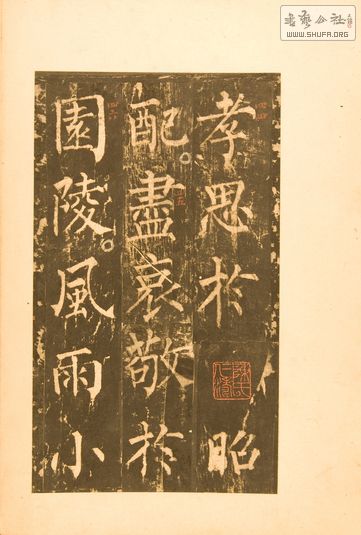 書藝公社
WWW.SHUFA.ORG
孝思於昭
配。盡哀敬於
園陵。風雨小